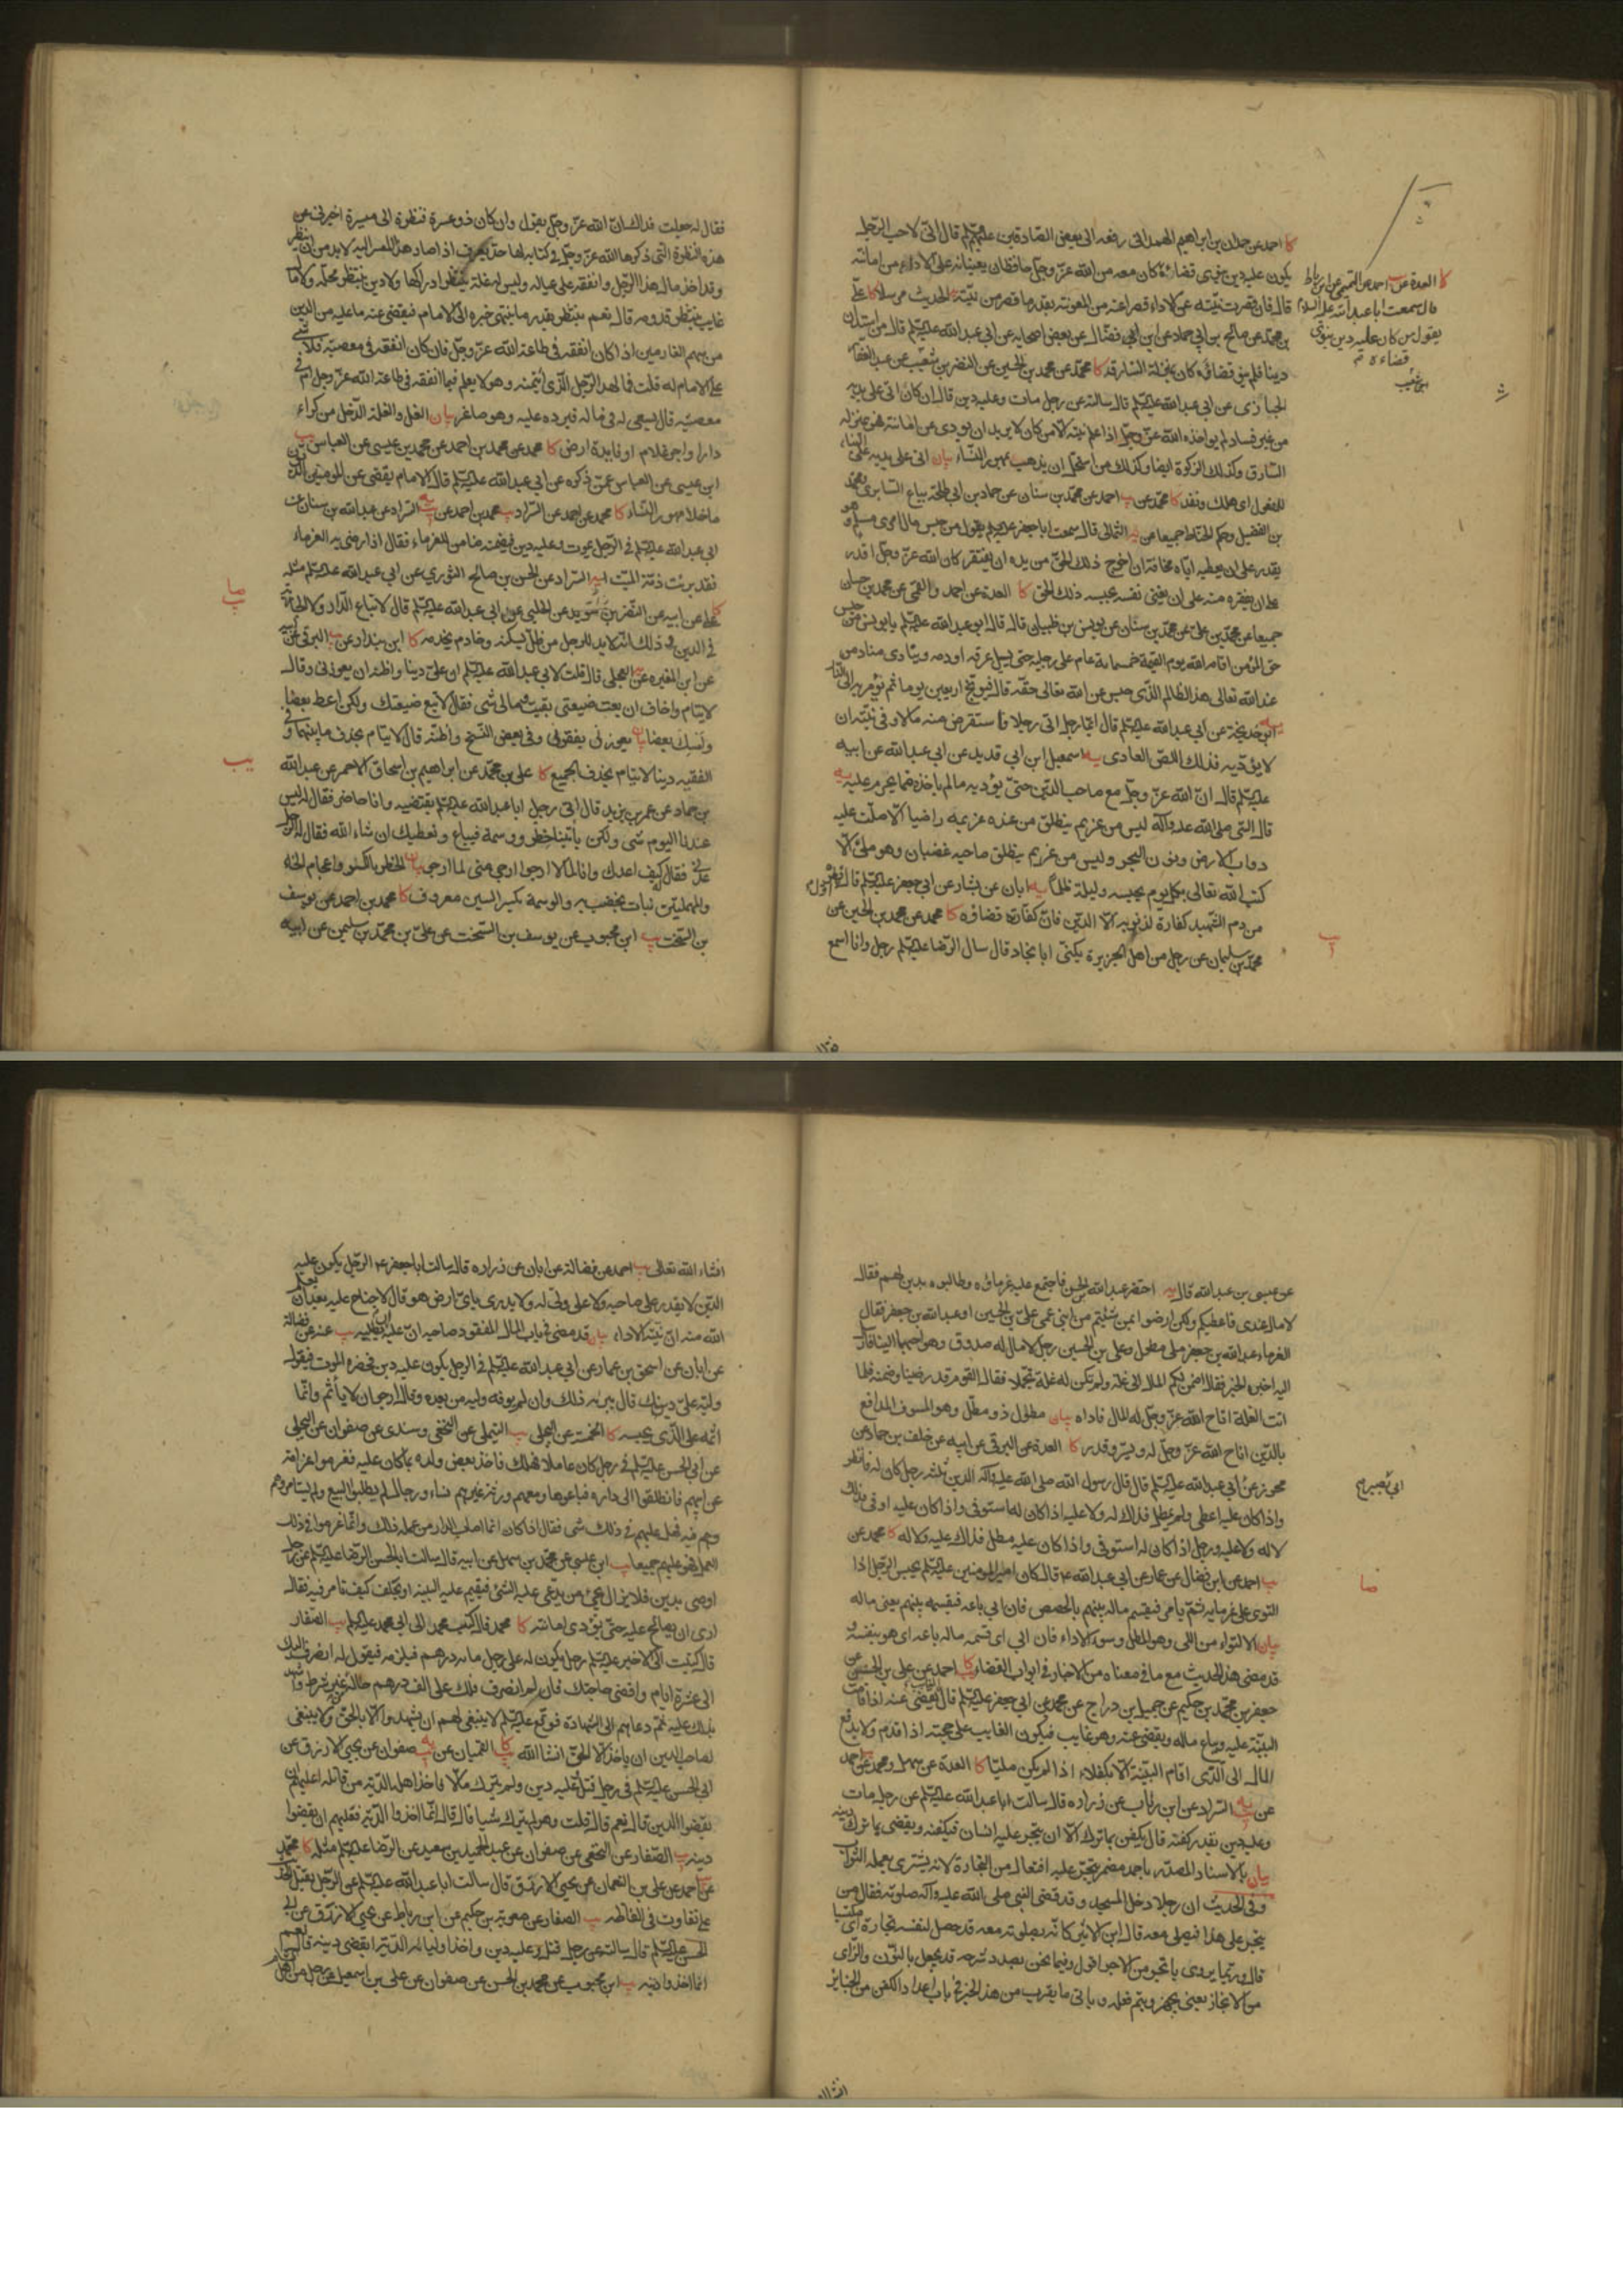 كا احمد عن حمدان بن ابراهيم الهمداني رفعه الى بعض الصادقين عليهم السلم قال اني لاحب الرجل
يكون عليه دين ينوي قضاءه كان معه من الله عز وجل حافظان يعينانه على الاداء من امانته
قال فان قصرت نيته عن الاداء قصرا عنه من المعونة بقدر ما قصر من نيته الحديث مرسلا كا علي
بن محمد عن صالح بن ابي حماد عن ابن ابي فضال عن بعض اصحابه عن ابي عبد الله عليه السلم قال من استدان
دينا فلم ينو قضاؤه كان بمنزلة السارق كا محمد عن محمد بن الحسين عن النضر بن شعيب عن عبد الغفار
الجازي عن ابي عبد الله عليه السلم قال سالته عن رجل مات وعليه دين قال ان كان اتى على يديه
من غير فساد لم يواخذه الله عز وجل اذا علم نيته الا من كان لا يريد ان يودي عن امانته فهو بمنزلة
السارق وكذلك الزكوة ايضا وكذلك من استحل ان يذهب بمهور النساء بيان اتى على يديه على البناء
للمفعول اي هلك ونفد كا محمد عن احمد عن محمد بن سنان عن حماد بن ابي طلحة بياع السابري ومحمد
بن الفضيل وحكم الحناط جميعا عن الثمالي قال سمعت ابا جعفر عليه السلم يقول من حبس مال امرئ مسلم وهو
يقدر على ان يعطيه اياه مخافة ان اخرج ذلك الحق من يده ان يفتقر كان الله عز وجل اقدر
على ان يفقره منه على ان يغني نفسه بحبسه ذلك الحق كا العدة عن احمد والقمي عن محمد بن حسان
جميعا عن محمد بن علي عن محمد بن سنان عن يونس بن ظبيان قال قال ابو عبد الله عليه السلم يا يونس من حبس
حق المؤمن اقامه الله يوم القيمة خمسمائة عام على رجليه حتى يسيل عرقه او دمه وينادي مناد من
عند الله تعالى هذا الظالم الذي حبس عن الله تعالى حقه قال فيوبخ اربعين يوما ثم يؤمر به الى النار
ابي خديجة عن ابي عبد الله عليه السلم قال ايما رجل اتى رجلا فاستقرض منه مالا وفي نيته ان
لا يؤديه فذلك اللص العادي يه اسمعيل بن ابي قديك عن ابي عبد الله عن ابيه
عليه السلم قال ان الله عز وجل مع صاحب الدين حتى يؤديه ما لم ياخذه مما يحرم عليه يه
قال النبي صلى الله عليه وآله ليس من غريم ينطلق من عنده غريمه راضيا الا صلت عليه
دواب الارض ونون البحور وليس من غريم ينطلق صاحبه غضبان وهو ملي الا
كتب الله تعالى بكل يوم يحبسه وليلة ظلما يه ابان عن بشار عن ابي جعفر عليه السلم قال اول قطرة
من دم الشهيد كفارة لذنوبه الا الدين فان كفارته قضاؤه كا محمد عن محمد بن الحسين عن
محمد بن سليمان عن رجل من اهل الجزيرة يكنى ابا نجاد قال سال الرضا عليه السلم رجل وانا اسمع
كا العدة عن احمد عن التميمي عن ابن رباط
قال سمعت ابا عبد الله عليه السلام
يقول من كان عليه دين ينوي
قضاءه تم
فقال له جعلت فداك ان الله عز وجل يقول وان كان ذو عسرة فنظرة الى ميسرة اخبرني عن
هذه النظرة التي ذكرها الله عز وجل في كتابه لها حد يعرف اذا صار هذا المعسر اليه لابد من ان ينظر
وقد اخذ مال هذا الرجل وانفقه على عياله وليس له غلة ينتظر ادراكها ولا دين ينتظر محله ولا مال
غايب ينتظر قدومه قال نعم ينتظر بقدر ما ينتهي خبره الى الامام فيقضي عنه ما عليه من الدين
من سهم الغارمين اذا كان انفقه في طاعة الله عز وجل فان كان انفقه في معصيته فلا شي
على الامام له قلت فما لهذا الرجل الذي ائتمنه وهو لا يعلم فيما انفقه في طاعة الله عز وجل ام في
معصيته قال يسعى له في ماله فيرده عليه وهو صاغر بيان الغل والغلة الدخل من كراء
دار او اجر غلام او فايدة ارض كا محمد عن محمد بن احمد عن محمد بن عيسى عن العباس
ابن عيسى عن العباس عمن ذكره عن ابي عبد الله عليه السلم قال الامام يقضي عن المومنين الديون
ما خلا مهور النساء كا محمد عن احمد عن السراد يب محمد بن احمد عن السراد عن عبد الله بن سنان عن
ابي عبد الله عليه السلم في الرجل يموت وعليه دين فيضمنه ضامن للغرماء فقال اذا رضي به الغرماء
فقد برئت ذمة الميت السراد عن الحسن بن صالح الثوري عن ابي عبد الله عليه السلم مثله
كا علي عن ابيه عن النضر بن سويد عن الحلبي عن ابي عبد الله عليه السلم قال لا تباع الدار ولا الجارية
في الدين وذلك انه لابد للرجل من ظل يسكنه وخادم يخدمه كا ابن بندار عن البرقي عن ابيه
عن ابن المغيرة عن العجلي قال قلت لابي عبد الله عليه السلم ان علي دينا واظنه ان يعوزني وقال
لايتام واخاف ان بعت ضيعتي بقيت مالي شي فقال لا تبع ضيعتك ولكن اعط بعضا
وامسك بعضا بيان يعوزني يفقرني وفي بعض النسخ واظنه قال لايتام بحذف ما بينهما وفي
الفقيه دينا لايتام بحذف الجميع كا علي بن محمد عن ابراهيم بن اسحاق الاحمر عن عبد الله
بن حماد عن عمر بن يزيد قال اتى رجل ابا عبد الله عليه السلم يقتضيه وانا حاضر فقال له ليس
عندنا اليوم شي ولكن ياتينا خطر ووسمة فيباع ونعطيك ان شاء الله فقال له الرجل
عدني فقال كيف اعدك وانا لما لا ارجو ارجى مني لما ارجو بيان الخطر بالكسر واعجام الخاء
والمهملتين نبات يختضب به والوسمة بكسر السين معروف كا محمد بن احمد عن يوسف
بن السخت ابن محبوب عن يوسف بن السخت عن علي بن محمد بن سليمن عن ابيه
عن عيسى بن عبد الله قال احتضر عبد الله بن الحسن فاجتمع عليه غرماؤه وطالبوه بدين لهم فقال
لا مال عندي فاعطيكم ولكن ارضوا بمن شئتم من ابني عمي علي بن الحسين او عبد الله بن جعفر فقال
الغرماء عبد الله بن جعفر ملي مطول وعلي بن الحسين رجل لا مال له صدوق وهو احبهما الينا فارسل
اليه اخبره الخبر فقال اضمن لكم المال الى غلة ولم تكن له غلة تجملا فقال القوم قد رضينا وضمنه فلما
اتت الغلة اتاح الله عز وجل له المال فاداه بيان مطول ذو مطل وهو المسوف المدافع
بالدين اتاح الله عز وجل له ويسر وقدر كا العدة عن البرقي عن ابيه عن خلف بن حماد عن
محرز عن ابي عبد الله عليه السلم قال قال رسول الله صلى الله عليه وآله الدين ثلثة رجل كان له فانظر
واذا كان عليه اعطى ولم يمطل فذلك له ولا عليه ورجل اذا كان له استوفى واذا كان عليه اوفى فذلك
لا له ولا عليه ورجل اذا كان له استوفى واذا كان عليه مطل فذلك عليه ولا له كا محمد عن
احمد عن ابن فضال عن عمار عن ابي عبد الله ع قال كان امير المومنين عليه السلم يحبس الرجل اذا
التوى على غرمايه ثم يامر فيقسم ماله بينهم بالحصص فان ابى باعه فيقسمه بينهم يعني ماله
بيان الالتواء من اللي وهو المطل وسوء الاداء فان ابى اي قسمة ماله باعه اي هو بنفسه و
قد مضى هذا الحديث مع ما في معناه من الاخبار في ابواب القضاء كا احمد عن علي بن الحسن عن
جعفر بن محمد بن حكيم عن جميل بن دراج عن محمد عن ابي جعفر عليه السلم قال الغايب يقضى عنه اذا قامت
البينة عليه ويباع ماله ويقضى عنه وهو غايب فيكون الغايب على حجته اذا قدم ولا يدفع
المال الى الذي اقام البينة الا بكفلاء اذا لم يكن مليا كا العدة عن سهل ومحمد عن احمد
عن السراد عن ابن رئاب عن زراره قال سالت ابا عبد الله عليه السلم عن رجل مات
وعليه دين بقدر كفنه قال يكفن بما ترك الا ان يتجر عليه انسان فيكفنه ويقضى بما ترك دينه
بيان بالاسناد المصدر باحمد مضمر يتجر عليه افتعال من التجارة لانه يشتري بعمله الثواب
وفي الحديث ان رجلا دخل المسجد وقد قضى النبي صلى الله عليه وآله صلوته فقال من
يتجر على هذا فيصلي معه قال ابن الاثير كانه بصلوته معه قد حصل لنفسه تجارة اي مكسبا
قال وربما يروى ياتجر من الاجر اقول وفيما نحن بصدد شرحه قد يجعل بالنون والزاي
من الانجاز يعني يجهز ويتم فعله وياتي ما يقرب من هذا الخبر في باب اعداد الكفن من الجنايز
ابي بصير
انشاء الله تعالى احمد عن فضالة عن ابان عن زراره قال سالت ابا جعفر ع الرجل يكون عليه
الدين لا يقدر على صاحبه ولا على ولي له ولا يدري باي ارض هو قال لا جناح عليه بعد ان يعلم
الله منه ان نيته الاداء بيان قد مضى في باب المال المفقود صاحبه ان عليه ان يطلبه عنه عن فضالة
عن ابان عن اسحق بن عمار عن ابي عبد الله عليه السلم في الرجل يكون عليه دين فحضره الموت فيقول
وليه علي دينك قال يبرئه ذلك وان لم يوفه وليه من بعده وقال ارجو ان لا يأثم وانما
اثمه على الذي يحبسه التيملي عن النخعي وسندي عن صفوان عن البجلي
عن ابي الحسن عليه السلم في رجل كان عاملا فهلك فاخذ بعض ولده بما كان عليه فغرموا غرامة
عن ابيهم فانطلقوا الى داره فباعوها ومعهم ورثة غيرهم نساء ورجال لم يطلبوا البيع ولم يستامروهم
وهم فيه فهل عليهم في ذلك شي فقال اذا كان انما اصاب الدار من عمله ذلك وانما غرموا في ذلك
العمل فهو عليهم جميعا ابن عيسى عن محمد بن سهل عن ابيه قال سالت ابا الحسن الرضا عليه السلم عن رجل
اوصى بدين فلا يزال يجئ من يدعي عليه الشئ فيقيم عليه البينة او يحلف كيف تامر فيه فقال
ارى ان يصالح عليه حتى يؤدي امانته كا محمد قال كتب محمد الى ابي محمد عليه السلم الصفار
قال كتبت الى الاخير عليه السلم رجل يكون له على رجل مائة درهم فيلزمه فيقول له انصرف اليك
الى عشرة ايام واقضي حاجتك فان لم انصرف فلك علي الف درهم حالة من غير شرط واشهد
بذلك عليه ثم دعاهم الى الشهادة فوقع عليه السلم لا ينبغي لهم ان يشهدوا الا بالحق ولا ينبغي
لصاحب الدين ان ياخذ الا الحق انشا الله كا القميان عن صفوان عن يحيى الازرق عن
ابي الحسن عليه السلم في رجل قتل وعليه دين ولم يترك مالا فاخذ اهله الدية من قاتله اعليهم ان
يقضوا الدين قال نعم قال قلت وهو لم يترك شيا قال قال انما اخذوا الدية فعليهم ان يقضوا
دينه الصفار عن النخعي عن صفوان عن عبد الحميد بن سعيد عن الرضا عليه السلم مثله كا محمد
عن احمد عن علي بن النعمان عن يحيى الازرق قال سالت ابا عبد الله عليه السلم عن الرجل يقتل الحديث
على تفاوت في الفاظه الصفار عن معوية بن حكيم عن ابن رباط عن يحيى الازرق عن ابي
الحسن عليه السلم قال سالته عن رجل قتل وعليه دين واخذ اولياؤه الدية ايقضى دينه قال نعم
انما اخذوا دينه ابن محبوب عن محمد بن الحسن عن صفوان عن علي بن اسمعيل عن رجل من اهل